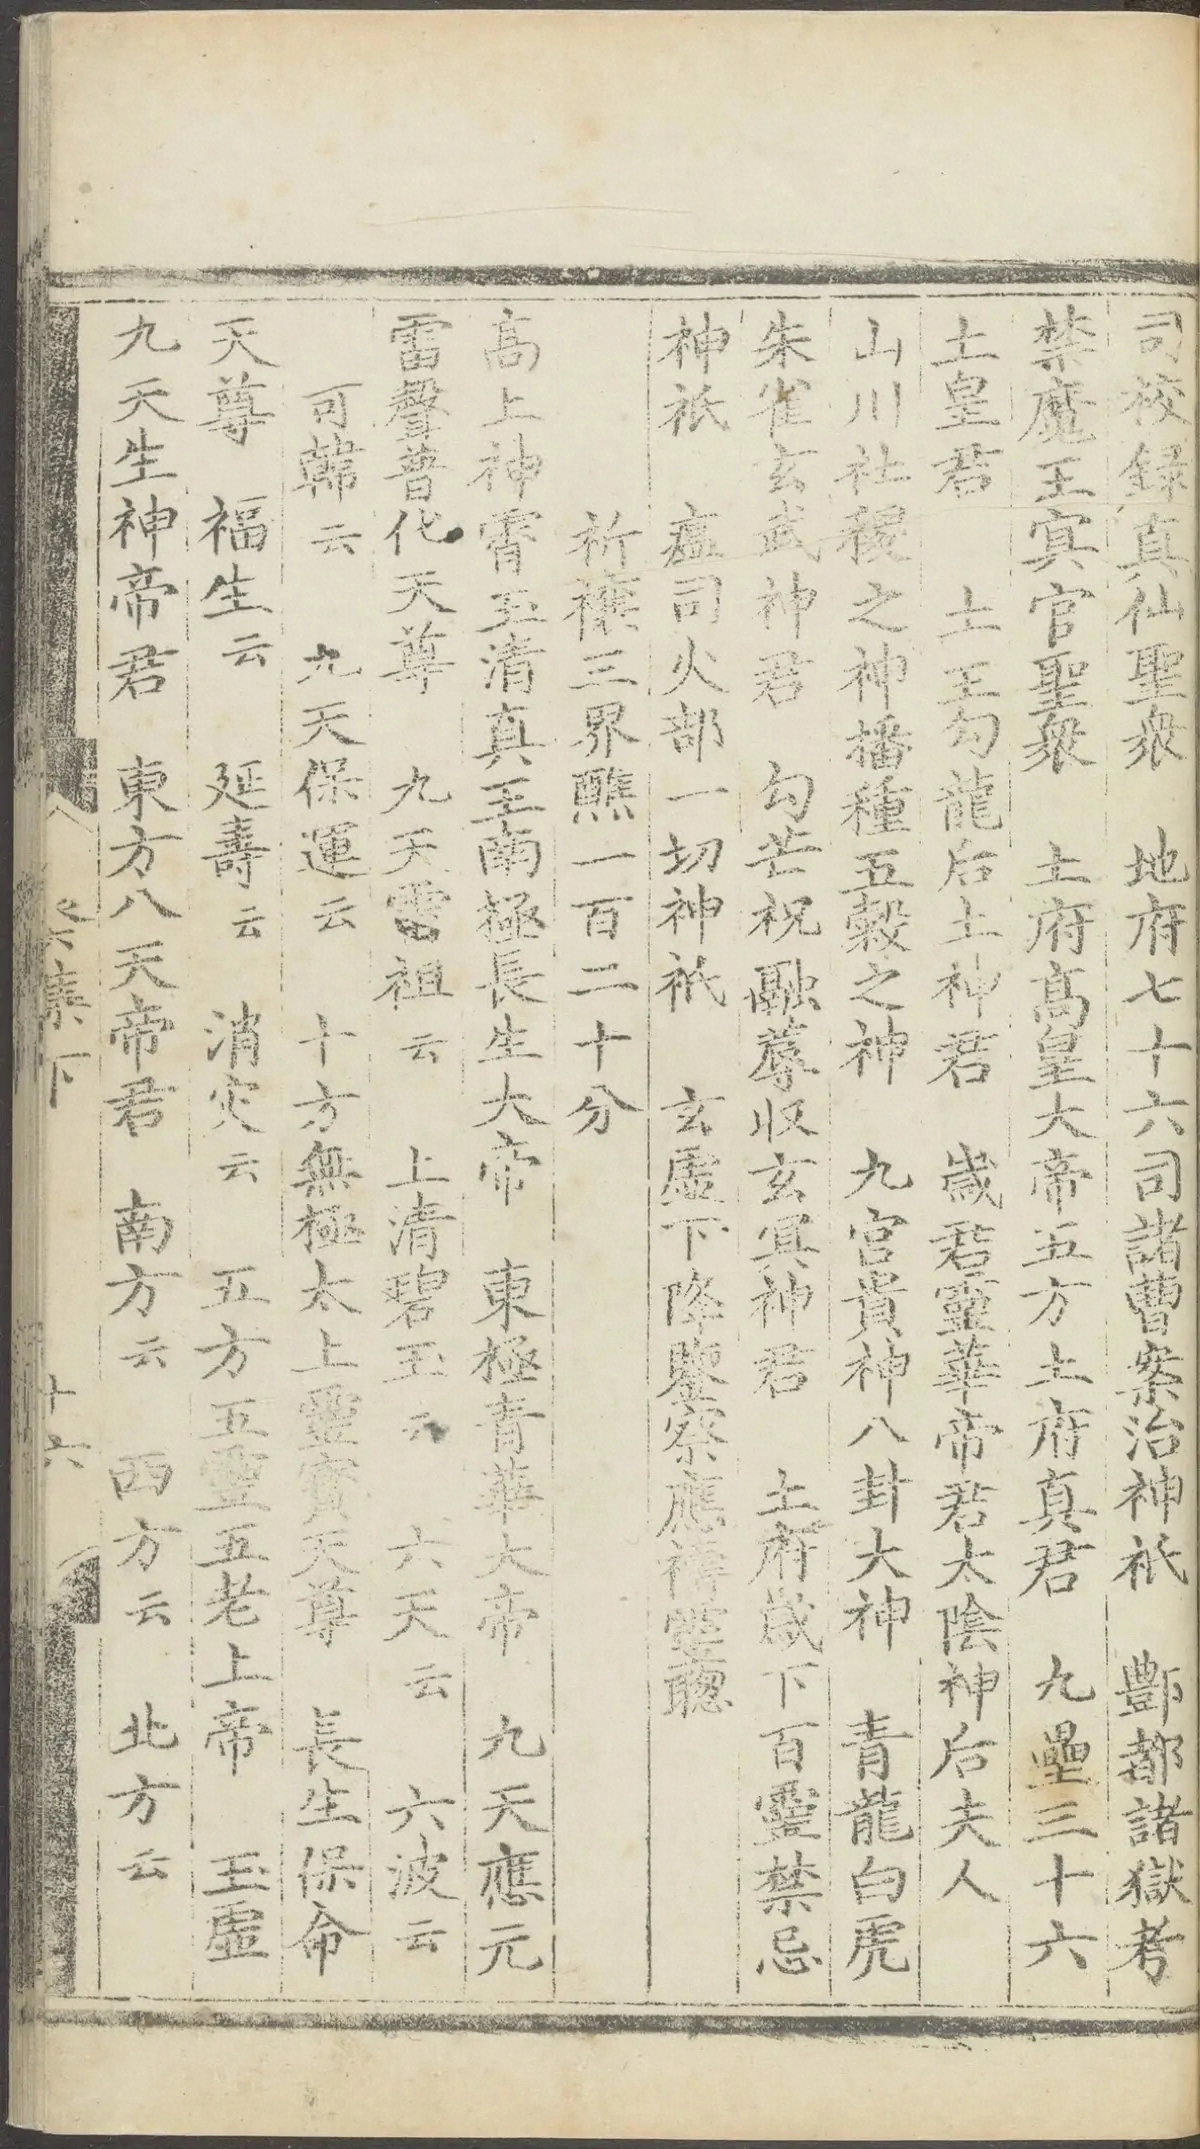 司校録真仙聖衆　地府七十六司諸曹案治神祇　酆都諸獄考
禁魔王冥官聖衆　土府高皇大帝五方土府真君　九壘三十六
土皇君　土王勾龍后土神君　歲君靈華帝君太陰神后夫人
山川社稷之神播種五穀之神　九宮貴神八封大神　青龍白虎
朱雀玄武神君　勾芒祝融蓐收玄冥神君　土府歲下百靈禁忌
神祇　瘟司火部一切神祇　玄虛下降鑒察應禱靈聰
祈禳三界醮一百二十分
高上神霄玉清真王南極長生大帝　東極青華大帝　九天應元
雷聲普化天尊　九天雷祖云　上清碧玉云　六天云　六波云
可韓云　九天保運云　十方無極太上靈寶天尊　長生保命
天尊　福生云　延壽云　消灾云　五方五靈五老上帝　玉虛
九天生神帝君　東方八天帝君　南方云　西方云　北方云
六集下　十六